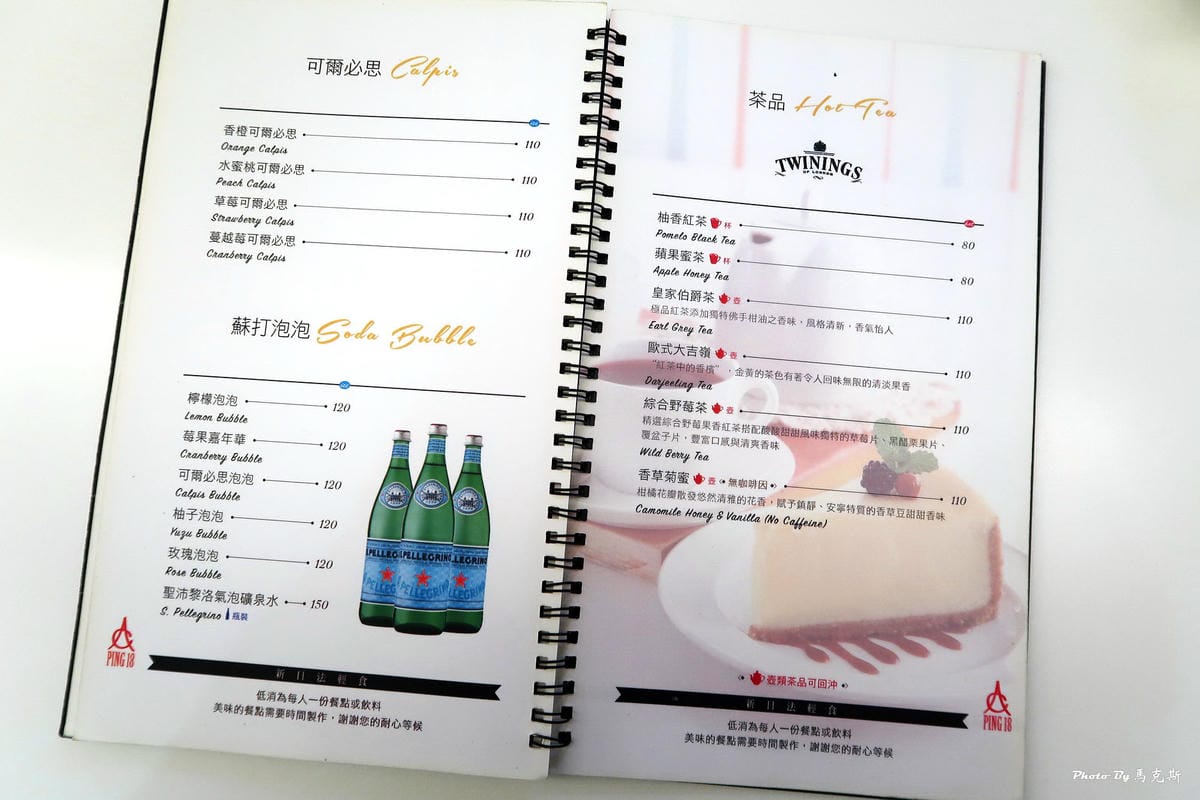 可爾必思 Calpis
Ice
香橙可爾必思 110
Orange Calpis
水蜜桃可爾必思 110
Peach Calpis
草莓可爾必思 110
Strawberry Calpis
蔓越莓可爾必思 110
Cranberry Calpis
蘇打泡泡 Soda Bubble
Ice
檸檬泡泡 120
Lemon Bubble
莓果嘉年華 120
Cranberry Bubble
可爾必思泡泡 120
Calpis Bubble
柚子泡泡 120
Yuzu Bubble
玫瑰泡泡 120
Rose Bubble
聖沛黎洛氣泡礦泉水 150
S. Pellegrino 瓶裝
S.PELLEGRINO
PING 18
新日法輕食
低消為每人一份餐點或飲料
美味的餐點需要時間製作，謝謝您的耐心等候
茶品 Hot Tea
TWININGS
OF LONDON
Hot
柚香紅茶 杯 80
Pomelo Black Tea
蘋果蜜茶 杯 80
Apple Honey Tea
皇家伯爵茶 壺 110
極品紅茶添加獨特佛手柑油之香味，風格清新，香氣怡人
Earl Grey Tea
歐式大吉嶺 壺 110
"紅茶中的香檳"，金黃的茶色有著令人回味無限的清淡果香
Darjeeling Tea
綜合野莓茶 壺 110
精選綜合野莓果香紅茶搭配酸酸甜甜風味獨特的草莓片、黑醋栗果片、
覆盆子片，豐富口感與清爽香味
Wild Berry Tea
香草菊蜜 壺 無咖啡因 110
柑橘花瓣散發悠然清雅的花香，賦予鎮靜、安寧特質的香草豆甜甜香味
Camomile Honey & Vanilla (No Caffeine)
壺類茶品可回沖
新日法輕食
低消為每人一份餐點或飲料
美味的餐點需要時間製作，謝謝您的耐心等候
PING 18
Photo By 馬克斯